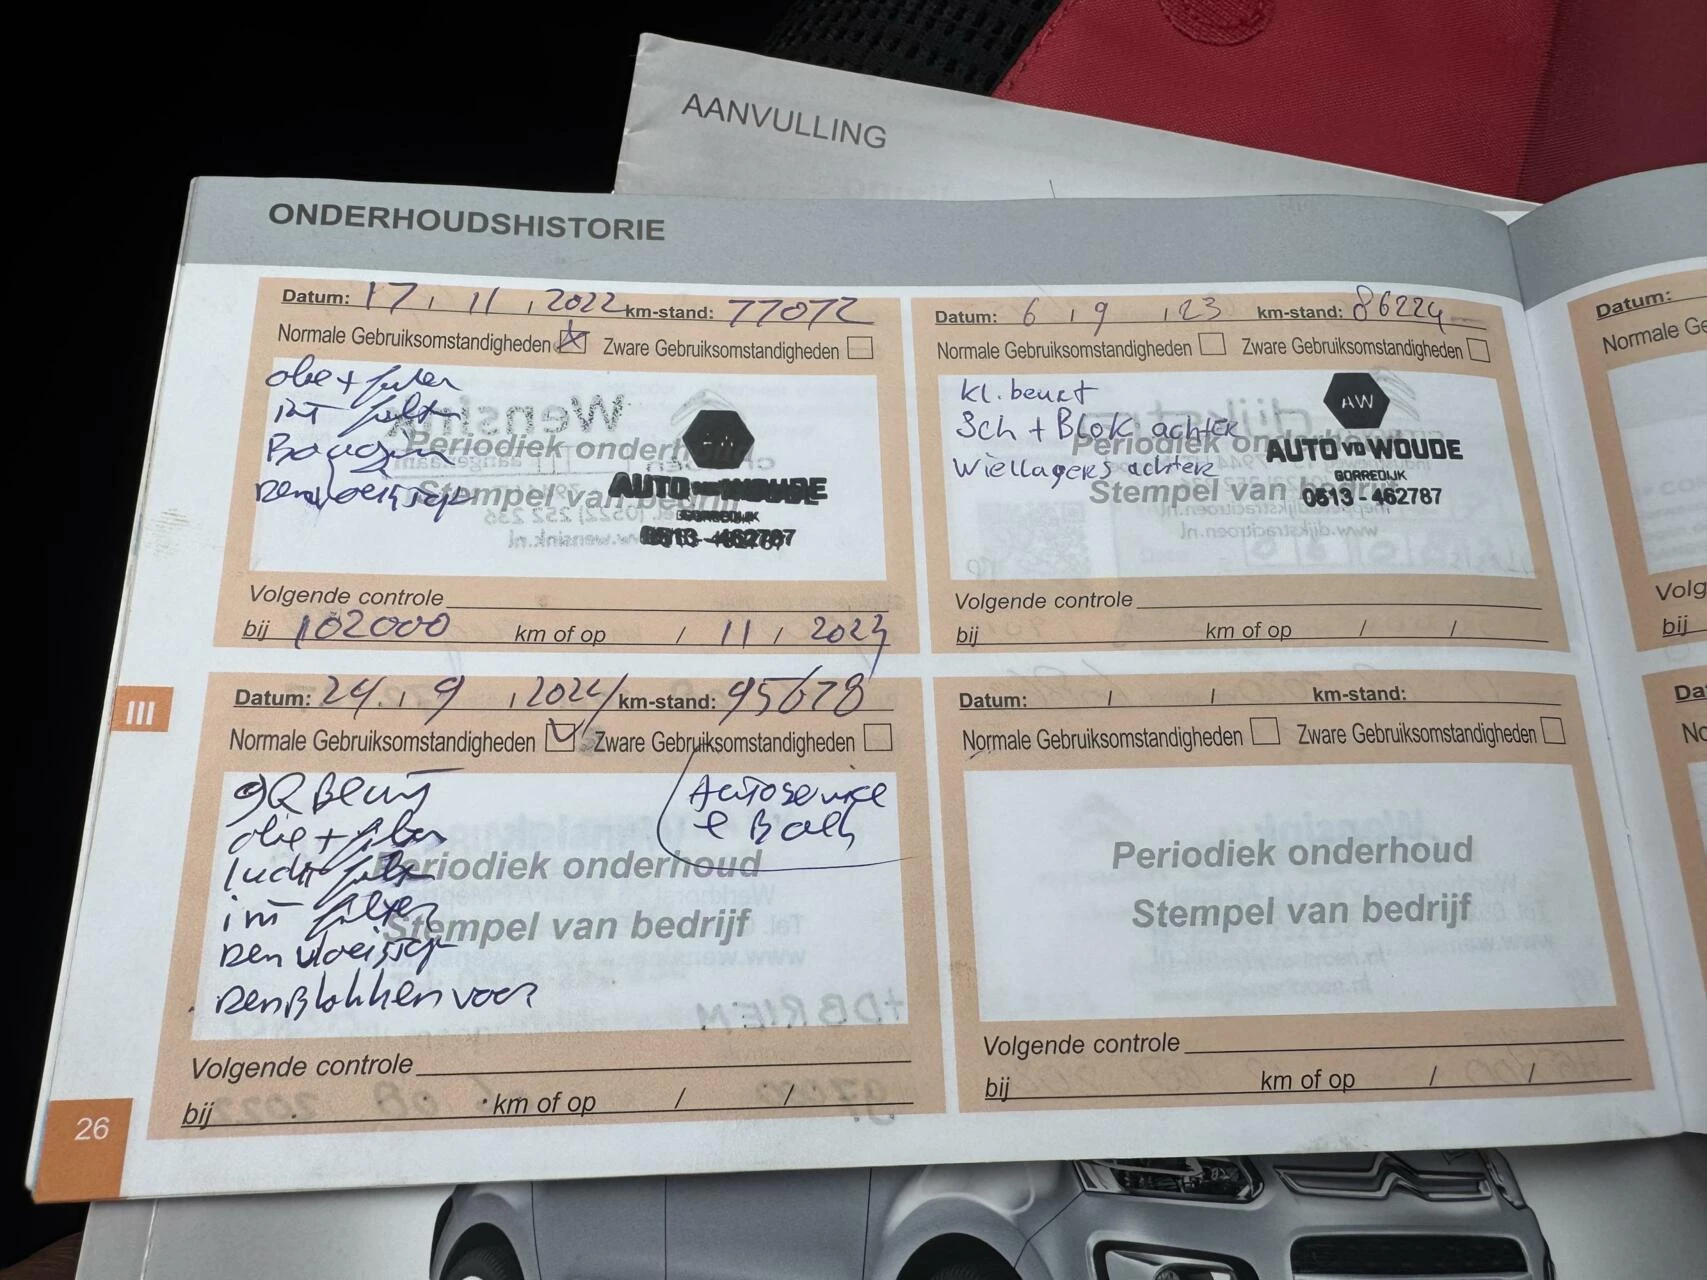 AANVULLING
ONDERHOUDSHISTORIE
Datum: 17 / 11 / 2022 km-stand: 77072
Normale Gebruiksomstandigheden Zware Gebruiksomstandigheden
olie + filter
int filter
Bougies
Remvloeistof
Periodiek onderhoud
Stempel van bedrijf
AUTO VD WOUDE
GORREDIJK
0513-462787
Volgende controle
bij 102000 km of op / 11 / 2024
Datum: 6 / 9 / 23 km-stand: 86224
Normale Gebruiksomstandigheden Zware Gebruiksomstandigheden
kl. beurt
Sch + Blok achter
Wiellagers achter
Periodiek onderhoud
Stempel van bedrijf
AW
AUTO VD WOUDE
GORREDIJK
0513-462787
Volgende controle
bij km of op / /
Datum: 24 / 9 / 2024 km-stand: 95678
Normale Gebruiksomstandigheden Zware Gebruiksomstandigheden
Beurt
olie + filter
lucht filter
int filter
Rem vloeistof
Remblokken voor
Autoservice
Periodiek onderhoud
Stempel van bedrijf
Volgende controle
bij km of op / /
Datum: / / km-stand:
Normale Gebruiksomstandigheden Zware Gebruiksomstandigheden
Periodiek onderhoud
Stempel van bedrijf
Volgende controle
bij km of op / /
III
26
Datum:
Normale Ge
Volg
bij
Da
No